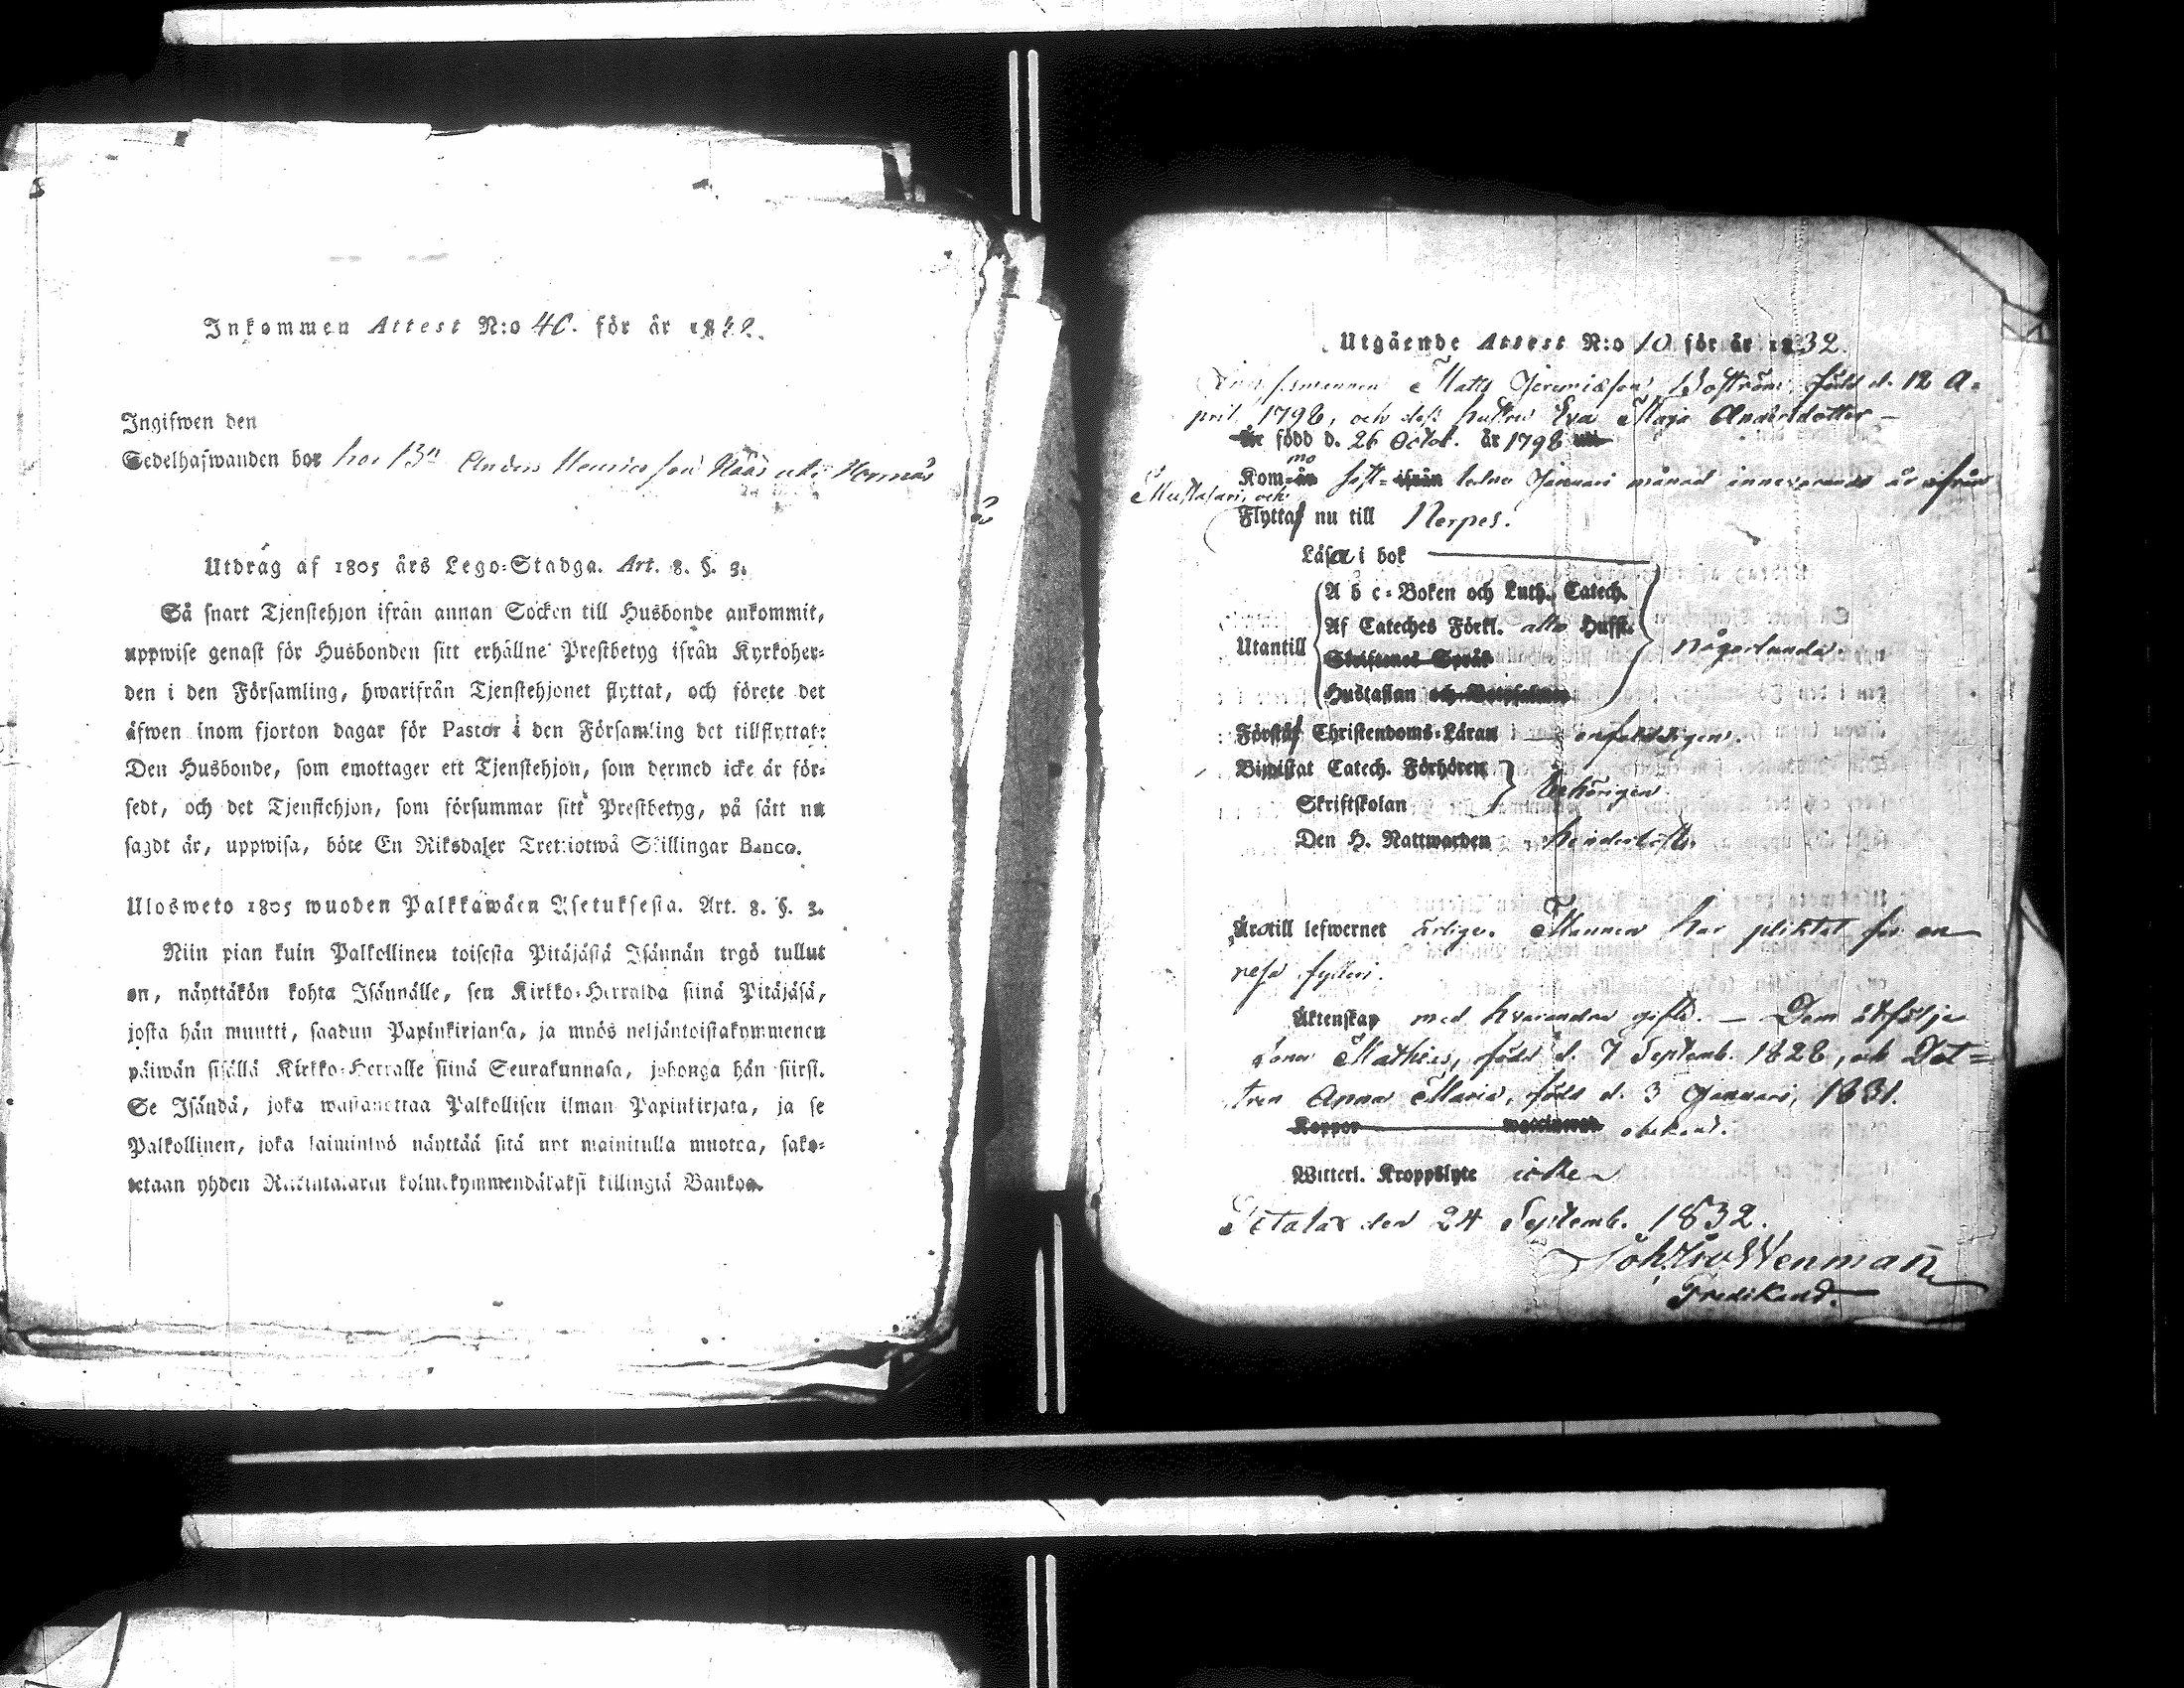 Inkommen Attest N:o 40. för år 1832.
Ingifwen den
Sedelhafwanden bor hos Bn Anders Henricsson Nääs uti
Utdrag af 1805 års Lego-Stadga. Art. 8. §. 3.
Så snart Tjenstehjon ifrån annan Socken till Husbonde ankommit,
uppwise genast för Husbonden sitt erhållne Prestbetyg ifrån Kyrkoher-
den i den Församling, hwarifrån Tjenstehjonet flyttat, och förete det
äfwen inom fjorton dagar för Pastor i den Församling det tillflyttat:
Den Husbonde, som emottager ett Tjenstehjon, som dermed icke är för-
sedt, och det Tjenstehjon, som försummar sitt Prestbetyg, på sätt nu
sagdt är, uppwisa, böte En Riksdaler Trettiotwå Skillingar Banco.
Ulosweto 1805 wuoden Palkkawäen Asetuksesta. Art. 8. §. 3.
Niin pian kuin Palkollinen toisesta Pitäjästä Isännän tygö tullut
on, näyttäkön kohta Isännälle, sen Kirkko-Herralda siinä Pitäjäsä,
josta hän muutti, saadun Papinkirjansa, ja myös neljäntoistakymmenen
päiwän sisällä Kirkko-Herralle siinä Seurakunnasa, johonga hän siirst.
Se Isändä, joka wastanottaa Palkollisen ilman Papinkirjata, ja se
Palkollinen, joka laiminlyö näyttää sitä nyt mainitulla muotoa, sako-
tetaan yhden Riikintalarin kolmekymmendäkaksi killingiä Bankoa.
Utgående Attest N:o 10 för år 1832.
Matts Jeremiasson Boström född d. 12 A-
pril 1798, och dess hustru Eva Maja Andersdotter
Är född d. 26 Octob. år 1798
Kommo sist ifrån Januari månad innevarande år ifrån
Mustasari, och
Flyttaf nu till Nerpes.
Läsa i bok
A b c-Boken och Luth. Catech.
Af Cateches Förkl. alla Hufst.
Utantill
Skriftenes Språk
någorlunda.
Hustaflan och Botpsalmen
Förstå Christendoms-Läran enfaldigen.
Biwistat Catech. Förhören
behörigen
Skriftskolan
Den H. Nattwarden hinderlöst.
Äro till lefwernet ärliga. Mannen har pliktat för en
resa fylleri.
Äktenskap med hvarandra gifta. — Dem åtfölja
sonen Mathias, född d. 7 Septemb. 1828, och Dot-
tren Anna Maria, född d. 3 Januari, 1831.
Koppor waccinerad obekant.
Witterl. Kroppslyte icke
Petalax den 24 Septemb. 1832.
Wenman
Predikand.